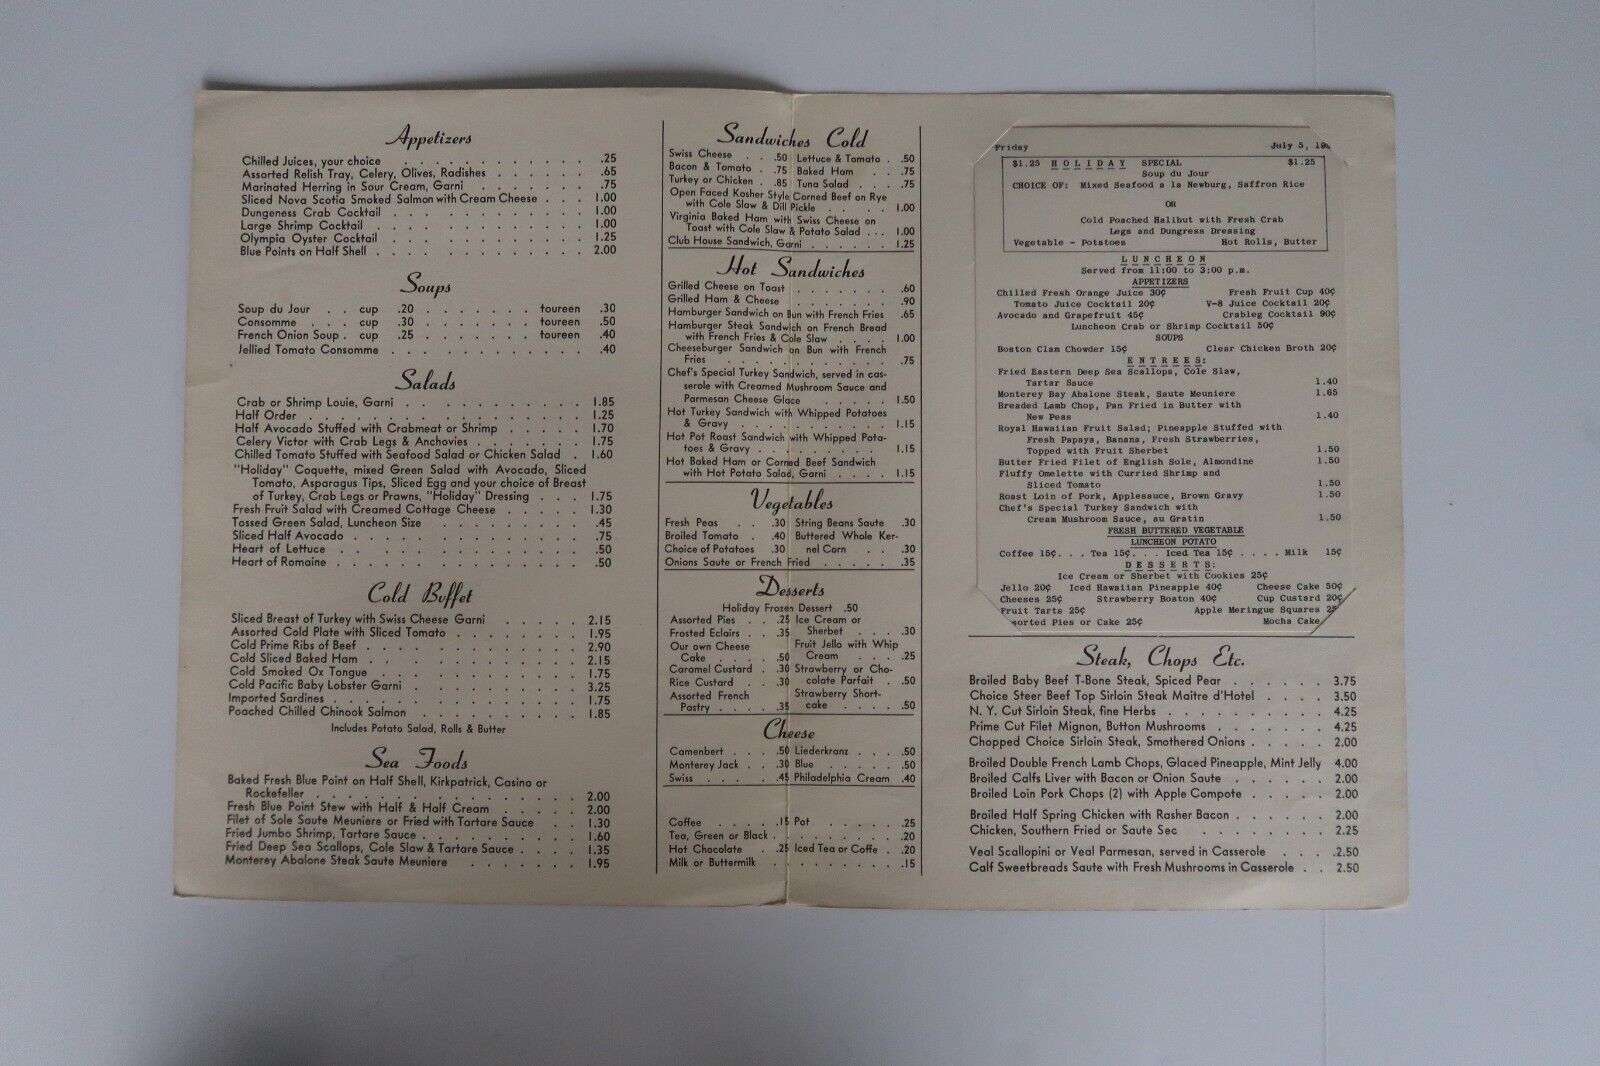 Appetizers
Chilled Juices, your choice . . . . . . . . . . . . .25
Assorted Relish Tray, Celery, Olives, Radishes . . . . . . .65
Marinated Herring in Sour Cream, Garni . . . . . . . .75
Sliced Nova Scotia Smoked Salmon with Cream Cheese . . . 1.00
Dungeness Crab Cocktail . . . . . . . . . . . 1.00
Large Shrimp Cocktail . . . . . . . . . . . . 1.00
Olympia Oyster Cocktail . . . . . . . . . . . 1.25
Blue Points on Half Shell . . . . . . . . . . . . 2.00
Soups
Soup du Jour . . cup .20 . . . . . . . toureen .30
Consomme . . . cup .30 . . . . . . . toureen .50
French Onion Soup . cup .25 . . . . . . . toureen .40
Jellied Tomato Consomme . . . . . . . . . . . .40
Salads
Crab or Shrimp Louie, Garni . . . . . . . . . . 1.85
Half Order . . . . . . . . . . . . . . . 1.25
Half Avocado Stuffed with Crabmeat or Shrimp . . . . . 1.70
Celery Victor with Crab Legs & Anchovies . . . . . . 1.75
Chilled Tomato Stuffed with Seafood Salad or Chicken Salad . 1.60
"Holiday" Coquette, mixed Green Salad with Avocado, Sliced
Tomato, Asparagus Tips, Sliced Egg and your choice of Breast
of Turkey, Crab Legs or Prawns, "Holiday" Dressing . . . 1.75
Fresh Fruit Salad with Creamed Cottage Cheese . . . . . 1.30
Tossed Green Salad, Luncheon Size . . . . . . . . . .45
Sliced Half Avocado . . . . . . . . . . . . . .75
Heart of Lettuce . . . . . . . . . . . . . . .50
Heart of Romaine . . . . . . . . . . . . . . .50
Cold Buffet
Sliced Breast of Turkey with Swiss Cheese Garni . . . . . 2.15
Assorted Cold Plate with Sliced Tomato . . . . . . . 1.95
Cold Prime Ribs of Beef . . . . . . . . . . . . 2.90
Cold Sliced Baked Ham . . . . . . . . . . . . 2.15
Cold Smoked Ox Tongue . . . . . . . . . . . 1.75
Cold Pacific Baby Lobster Garni . . . . . . . . . 3.25
Imported Sardines . . . . . . . . . . . . . 1.75
Poached Chilled Chinook Salmon . . . . . . . . . 1.85
Includes Potato Salad, Rolls & Butter
Sea Foods
Baked Fresh Blue Point on Half Shell, Kirkpatrick, Casino or
Rockefeller . . . . . . . . . . . . . . . 2.00
Fresh Blue Point Stew with Half & Half Cream . . . . . 2.00
Filet of Sole Saute Meuniere or Fried with Tartare Sauce . . 1.30
Fried Jumbo Shrimp, Tartare Sauce . . . . . . . . . 1.60
Fried Deep Sea Scallops, Cole Slaw & Tartare Sauce . . . . 1.35
Monterey Abalone Steak Saute Meuniere . . . . . . . 1.95
Sandwiches Cold
Swiss Cheese . . .50 Lettuce & Tomato . .50
Bacon & Tomato . .75 Baked Ham . . .75
Turkey or Chicken . .85 Tuna Salad . . .75
Open Faced Kosher Style Corned Beef on Rye
with Cole Slaw & Dill Pickle . . . . . 1.00
Virginia Baked Ham with Swiss Cheese on
Toast with Cole Slaw & Potato Salad . . . 1.00
Club House Sandwich, Garni . . . . . . 1.25
Hot Sandwiches
Grilled Cheese on Toast . . . . . . . .60
Grilled Ham & Cheese . . . . . . . . .90
Hamburger Sandwich on Bun with French Fries .65
Hamburger Steak Sandwich on French Bread
with French Fries & Cole Slaw . . . . 1.00
Cheeseburger Sandwich on Bun with French
Fries . . . . . . . . . . . . .75
Chef's Special Turkey Sandwich, served in cas-
serole with Creamed Mushroom Sauce and
Parmesan Cheese Glace . . . . . . 1.50
Hot Turkey Sandwich with Whipped Potatoes
& Gravy . . . . . . . . . . . 1.15
Hot Pot Roast Sandwich with Whipped Pota-
toes & Gravy . . . . . . . . . 1.15
Hot Baked Ham or Corned Beef Sandwich
with Hot Potato Salad, Garni . . . . 1.15
Vegetables
Fresh Peas . . .30 String Beans Saute .30
Broiled Tomato . .40 Buttered Whole Ker-
Choice of Potatoes .30 nel Corn . . .30
Onions Saute or French Fried . . . . . .35
Desserts
Holiday Frozen Dessert .50
Assorted Pies . . .25 Ice Cream or
Frosted Eclairs . . .35 Sherbet . . . .30
Our own Cheese Fruit Jello with Whip
Cake . . . . .50 Cream . . . . .25
Caramel Custard . .30 Strawberry or Cho-
Rice Custard . . .30 colate Parfait . .50
Assorted French Strawberry Short-
Pastry . . . . .35 cake . . . . .50
Cheese
Camenbert . . . .50 Liederkranz . . .50
Monterey Jack . . .30 Blue . . . . .50
Swiss . . . . .45 Philadelphia Cream .40
Coffee . . . . .15 Pot . . . . . .25
Tea, Green or Black . . . . . . . . . .20
Hot Chocolate . .25 Iced Tea or Coffe . .20
Milk or Buttermilk . . . . . . . . . .15
Friday July 5,
$1.25 HOLIDAY SPECIAL $1.25
Soup du Jour
CHOICE OF: Mixed Seafood a la Newburg, Saffron Rice
OR
Cold Poached Halibut with Fresh Crab
Legs and Dungress Dressing
Vegetable - Potatoes Hot Rolls, Butter
LUNCHEON
Served from 11:00 to 3:00 p.m.
APPETIZERS
Chilled Fresh Orange Juice 30¢ Fresh Fruit Cup 40¢
Tomato Juice Cocktail 20¢ V-8 Juice Cocktail 20¢
Avocado and Grapefruit 45¢ Crableg Cocktail 90¢
Luncheon Crab or Shrimp Cocktail 50¢
SOUPS
Boston Clam Chowder 15¢ Clear Chicken Broth 20¢
ENTREES:
Fried Eastern Deep Sea Scallops, Cole Slaw,
Tartar Sauce 1.40
Monterey Bay Abalone Steak, Saute Meuniere 1.65
Breaded Lamb Chop, Pan Fried in Butter with
New Peas 1.40
Royal Hawaiian Fruit Salad; Pineapple Stuffed with
Fresh Papaya, Banana, Fresh Strawberries,
Topped with Fruit Sherbet 1.50
Butter Fried Filet of English Sole, Almondine 1.50
Fluffy Omelette with Curried Shrimp and
Sliced Tomato 1.50
Roast Loin of Pork, Applesauce, Brown Gravy 1.50
Chef's Special Turkey Sandwich with
Cream Mushroom Sauce, au Gratin 1.50
FRESH BUTTERED VEGETABLE
LUNCHEON POTATO
Coffee 15¢. . . Tea 15¢. . . Iced Tea 15¢ . . . . Milk 15¢
DESSERTS:
Ice Cream or Sherbet with Cookies 25¢
Jello 20¢ Iced Hawaiian Pineapple 40¢ Cheese Cake 50¢
Cheeses 25¢ Strawberry Boston 40¢ Cup Custard 20¢
Fruit Tarts 25¢ Apple Meringue Squares
sorted Pies or Cake 25¢ Mocha Cake
Steak, Chops Etc.
Broiled Baby Beef T-Bone Steak, Spiced Pear . . . . . 3.75
Choice Steer Beef Top Sirloin Steak Maitre d'Hotel . . . . 3.50
N. Y. Cut Sirloin Steak, fine Herbs . . . . . . . . . . 4.25
Prime Cut Filet Mignon, Button Mushrooms . . . . . . 4.25
Chopped Choice Sirloin Steak, Smothered Onions . . . . . 2.00
Broiled Double French Lamb Chops, Glaced Pineapple, Mint Jelly 4.00
Broiled Calfs Liver with Bacon or Onion Saute . . . . . 2.00
Broiled Loin Pork Chops (2) with Apple Compote . . . . . 2.00
Broiled Half Spring Chicken with Rasher Bacon . . . . . 2.00
Chicken, Southern Fried or Saute Sec . . . . . . . 2.25
Veal Scallopini or Veal Parmesan, served in Casserole . . . .2.50
Calf Sweetbreads Saute with Fresh Mushrooms in Casserole . . 2.50